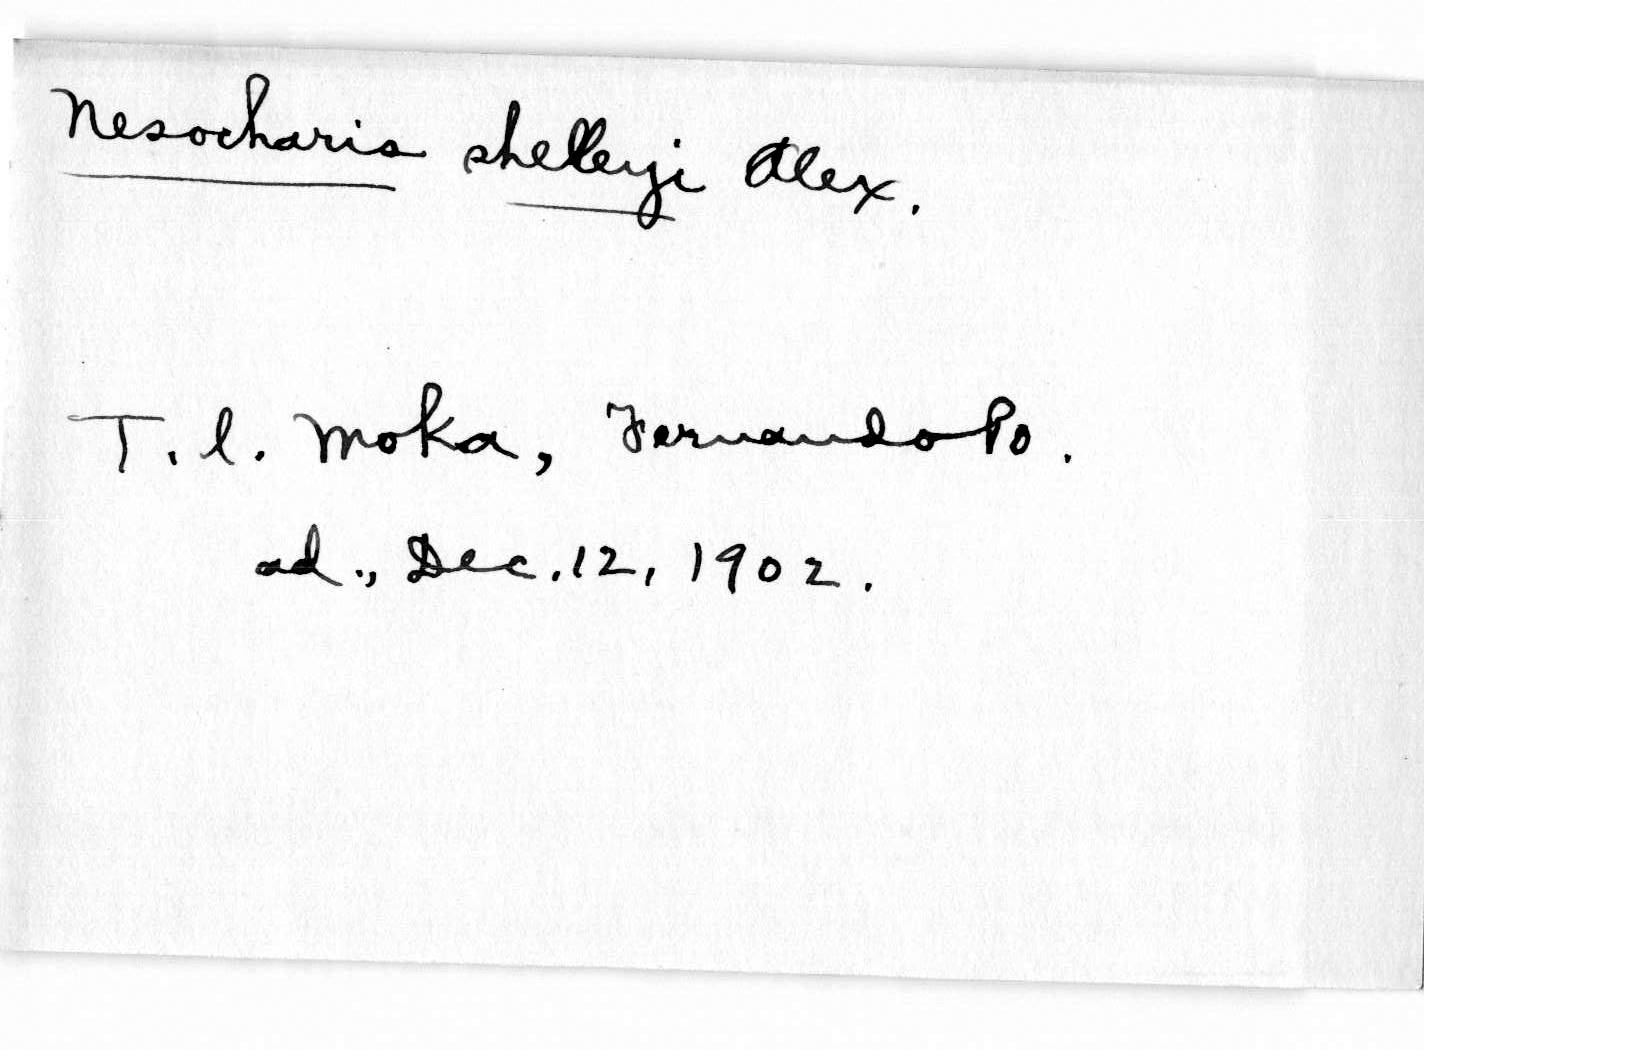 Nesocharis shelleyi Alex.
T.l. Moka, Fernando Po.
ad., Dec. 12, 1902.